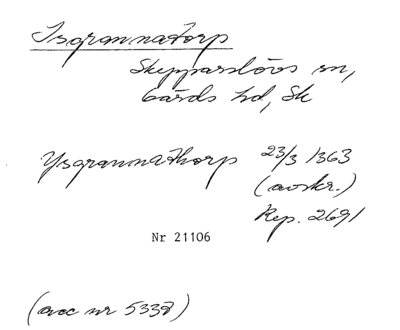 Isgrannatorp
Skepparslövs sn,
Gärds hd, Sk
Ysgrannathorp 23/3 1363
(avskr.)
Rep. 2691
Nr 21106
(acc nr 5338)